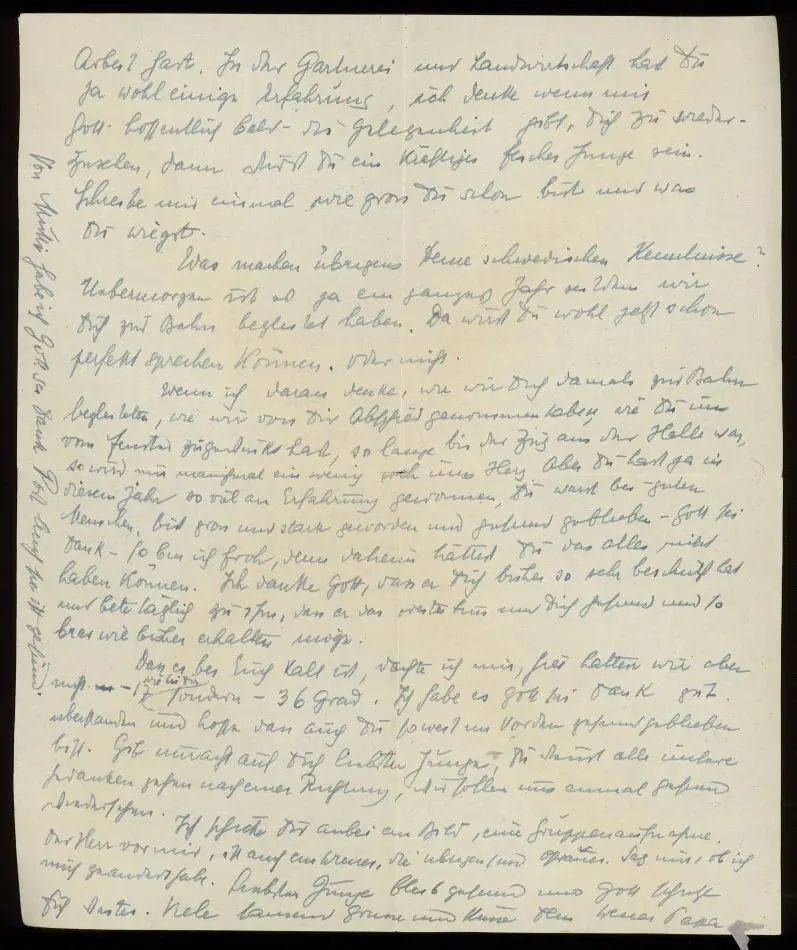 Arbeit hart. In der Gärtnerei und Landwirtschaft hast Du
ja wohl einige Erfahrung, ich denke wenn uns
Gott hoffentlich bald - die Gelegenheit gibt, Dich zu wieder-
zusehen, dann wirst Du ein kräftiges fesches Junge sein.
Schreibe mir einmal wie gross Du schon bist und was
Du wiegst.
Was machen übrigens Deine schwedischen Kenntnisse?
Uebermorgen ist es ja ein ganzes Jahr seitdem wir
Dich zur Bahn begleitet haben. Da wirst Du wohl jetzt schon
perfekt sprechen können. Oder nicht.
Wenn ich daran denke, wie wir Dich damals zur Bahn
begleiteten, wie wir von Dir Abschied genommen haben, wie Du uns
vom Fenster zugewinkt hast, so lange bis der Zug aus der Halle war,
so wird mir manchmal ein wenig ums Herz. Aber Du hast ja in
diesem Jahr so viel an Erfahrung gewonnen, Du warst bei guten
Menschen, bist gross und stark geworden und gesund geblieben - Gott sei
Dank - so bin ich froh, denn daheim hättest Du das alles nicht
haben können. Ich danke Gott, dass er Dich bisher so sehr beschützt hat
und bete täglich zu ihm, dass er das weiter tun und Dich gesund und so
brav wie bisher erhalten möge.
Dass es bei Euch kalt ist, dachte ich mir, hier hatten wir aber
nicht - 17 sondern - 36 Grad. Ich habe es Gott sei Dank gut
überstanden und hoffe dass auch Du soweit im Norden gesund geblieben
bist. Gib nur acht auf Dich liebster Junge, Du weisst alle unsere
Gedanken gehen nach einer Richtung, wir sollen uns einmal gesund
wiedersehen.
Ich schicke Dir anbei ein Bild, eine Gruppenaufnahme.
Der Herr vor mir, ist auch ein Wiener, die übrigen sind. Sag mir, ob ich
mich geändert habe. Liebster Junge bleib gesund und Gott schütze
Dich weiter. Viele tausend Grüsse und Küsse Dein Papa
Von Mutti habe ich Gott sei Dank Post und sie ist gesund.